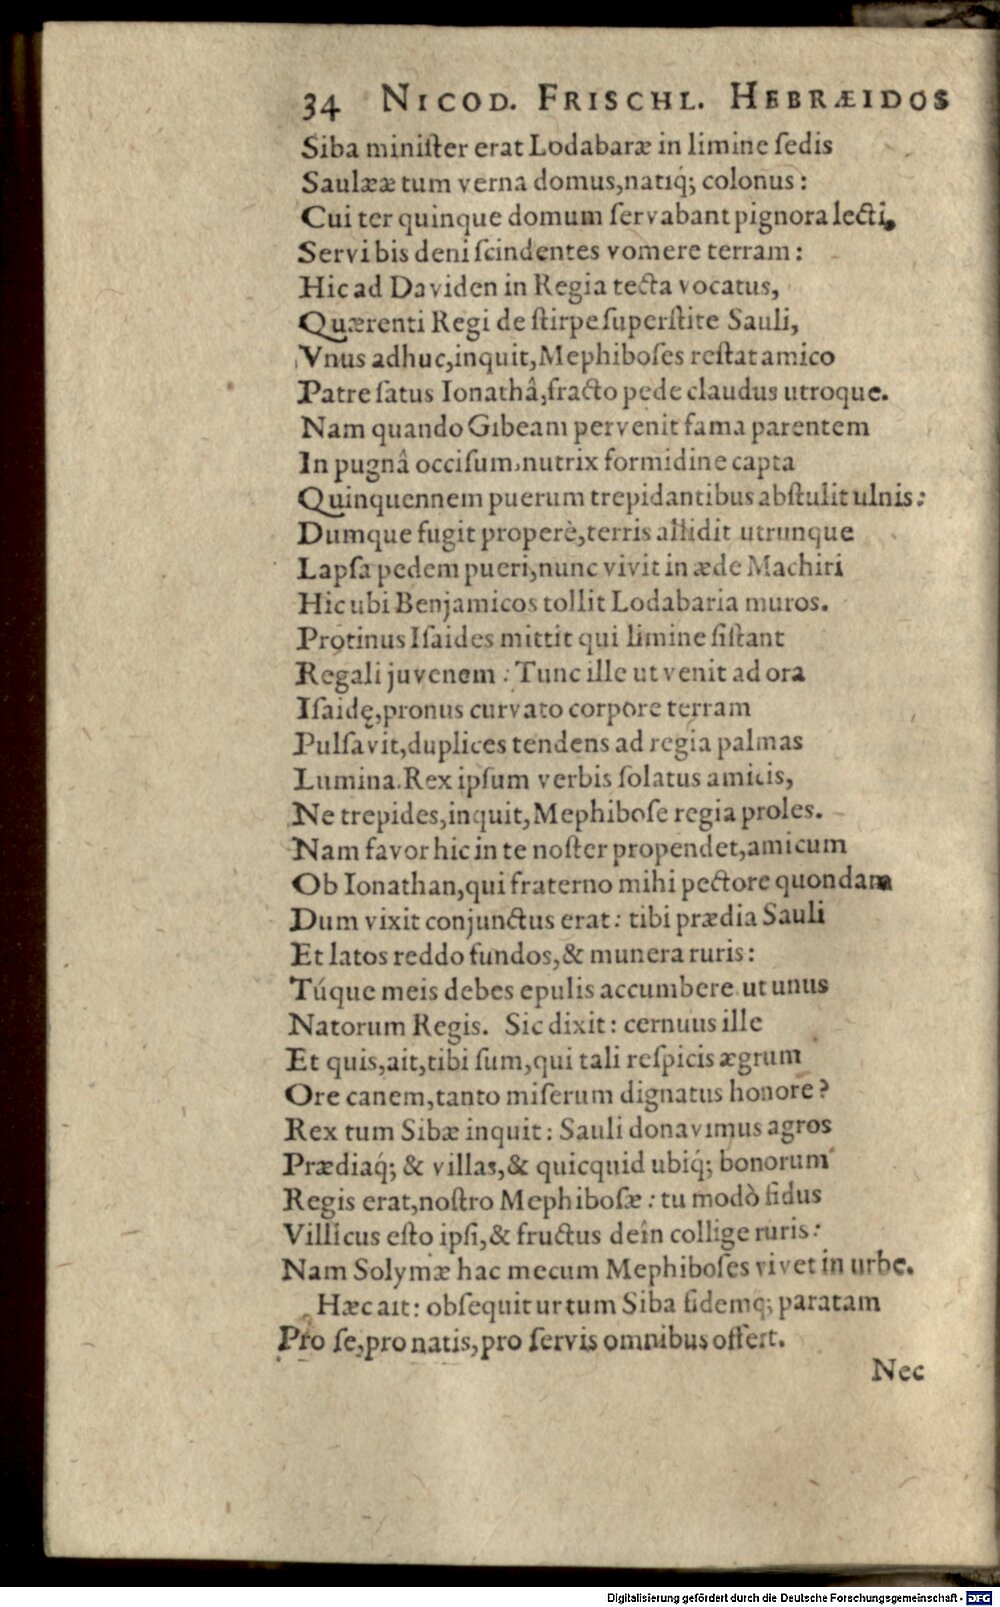 34 NICOD. FRISCHL. HEBRÆIDOS
Siba miniſter erat Lodabaræ in limine ſedis
Saulææ tum verna domus, natiq́; colonus:
Cui ter quinque domum ſervabant pignora lecti,
Servi bis deni ſcindentes vomere terram:
Hic ad Daviden in Regia tecta vocatus,
Quærenti Regi de ſtirpe ſuperſtite Sauli,
Vnus adhuc, inquit, Mephiboſes reſtat amico
Patre ſatus Ionathâ, fracto pede claudus utroque.
Nam quando Gibeam pervenit fama parentem
In pugnâ occiſum, nutrix formidine capta
Quinquennem puerum trepidantibus abſtulit ulnis:
Dumque fugit properè, terris allidit utrunque
Lapſa pedem pueri, nunc vivit in æde Machiri
Hic ubi Benjamicos tollit Lodabaria muros.
Protinus Iſaides mittit qui limine ſiſtant
Regali juvenem: Tunc ille ut venit ad ora
Iſaidę, pronus curvato corpore terram
Pulſavit, duplices tendens ad regia palmas
Lumina. Rex ipſum verbis ſolatus amicis,
Ne trepides, inquit, Mephiboſe regia proles.
Nam favor hic in te noſter propendet, amicum
Ob Ionathan, qui fraterno mihi pectore quondam
Dum vixit conjunctus erat: tibi prædia Sauli
Et latos reddo fundos, & munera ruris:
Túque meis debes epulis accumbere ut unus
Natorum Regis. Sic dixit: cernuus ille
Et quis, ait, tibi ſum, qui tali reſpicis ægrum
Ore canem, tanto miſerum dignatus honore?
Rex tum Sibæ inquit: Sauli donavimus agros
Prædiaq́; & villas, & quicquid ubiq́; bonorum
Regis erat, noſtro Mephiboſæ: tu modò fidus
Villicus eſto ipſi, & fructus dein collige ruris:
Nam Solymæ hac mecum Mephiboſes vivet in urbe.
Hæc ait: obſequitur tum Siba fidemq́; paratam
Pro ſe, pro natis, pro ſervis omnibus offert.
Nec
Digitalisierung gefördert durch die Deutsche Forschungsgemeinschaft - DFG